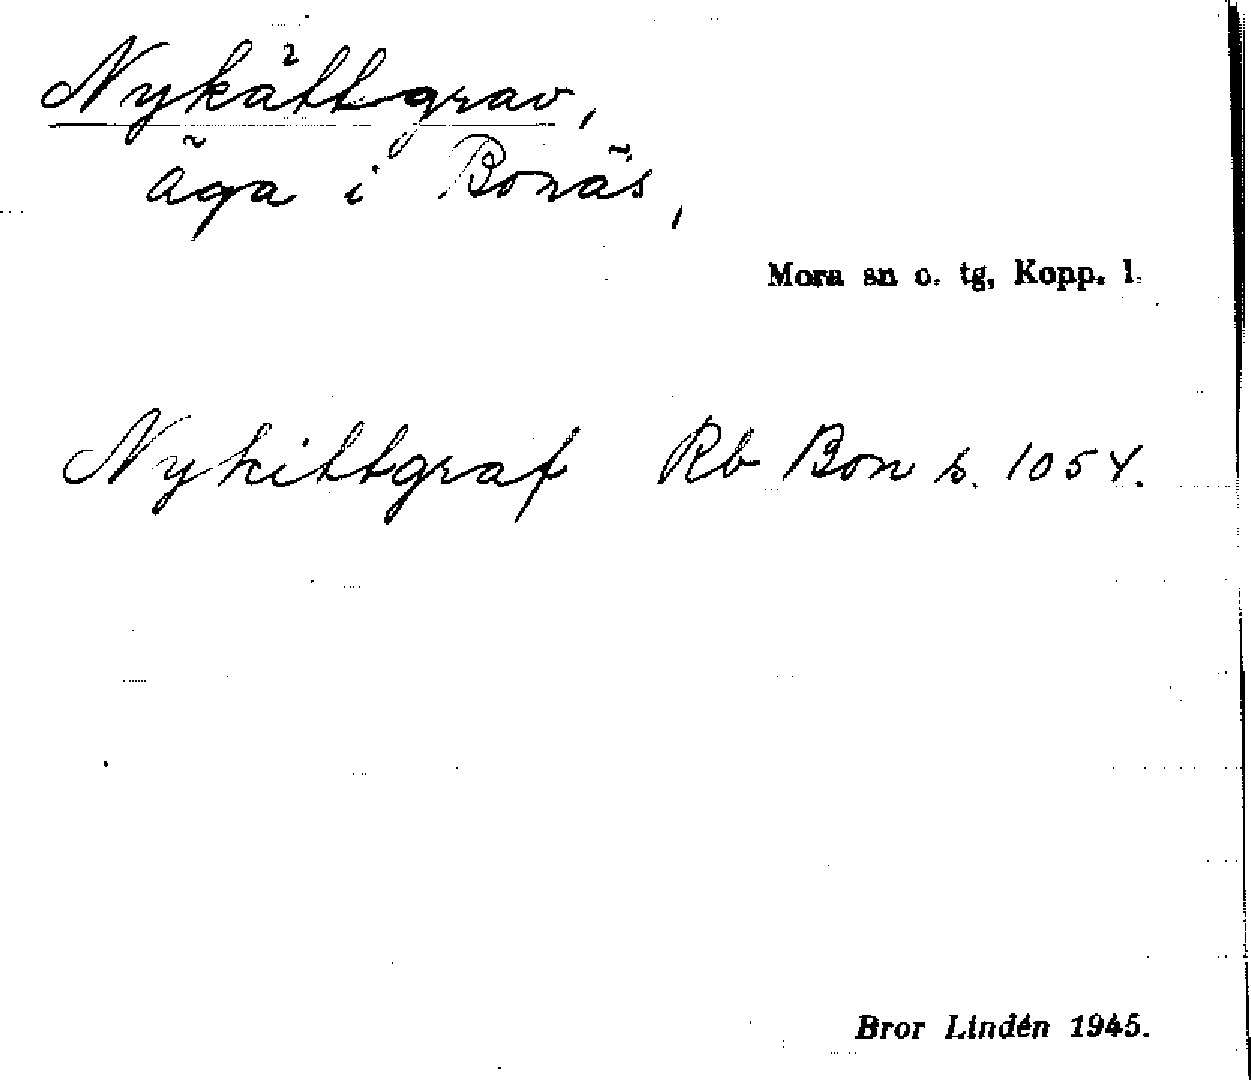 Nykättgrav,
äga i Bonäs,
Mora sn o. tg, Kopp. l.
Nykittgraf Rb Bon s. 1054.
Bror Lindén 1945.